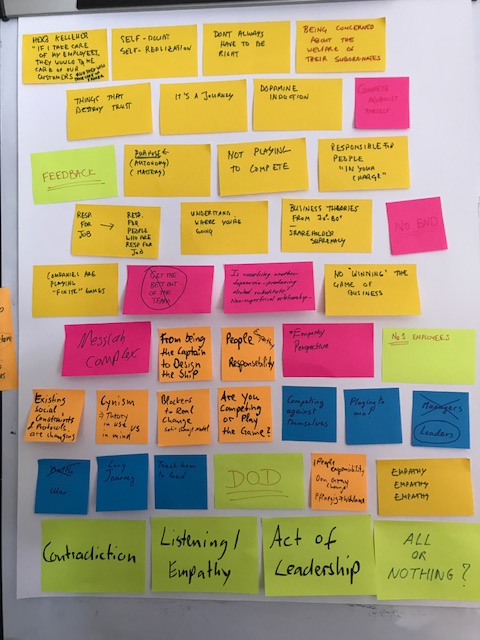 HERB KELLEHER
"IF I TAKE CARE
OF MY EMPLOYEES,
THEY WOULD TAKE
CARE OF OUR
CUSTOMERS
SELF-DOUBT
SELF-REALIZATION
DON'T ALWAYS
HAVE TO BE
RIGHT
BEING CONCERNED
ABOUT THE
WELFARE OF
THEIR SUBORDINATES
THINGS THAT
DESTROY TRUST
IT'S A JOURNEY
DOPAMINE
INDUCTION
COMPETE
AGAINST
FEEDBACK
PURPOSE
(AUTONOMY)
(MASTERY)
NOT PLAYING
TO COMPETE
RESPONSIBLE FOR
PEOPLE
"IN YOUR
CHARGE"
RESP FOR JOB → RESP. FOR PEOPLE WHO ARE RESP FOR JOB
UNDERSTAND
WHERE YOU'RE
GOING
BUSINESS THEORIES
FROM 70'-80'
SHAREHOLDER
SUPREMACY
NO END
COMPANIES ARE
PLAYING
"FINITE" GAMES
GET THE
BEST OUT
OF THE
TEAM
Is
another
dopamine-producing
alcohol substitute?
Non-superficial relationship
NO "WINNING" THE
GAME OF
BUSINESS
Messiah
Complex
From being
the Captain
to Design
the Ship
People
Responsibility
Empathy
Perspective
No 1 EMPLOYEES
Existing
Social
Constraints
& Protocols
are changing
Cynism
→ Theory
in use vs
in mind
Blockers
to Real
Change
Are you
competing
or Play
the Game?
Competing
against
themselves
Playing to
Managers
Leaders
War
Long
Journey
Teach them to
lead
DOD
People
responsibility
EMPATHY
EMPATHY
EMPATHY
Contradiction
Listening/
Empathy
Act of
Leadership
ALL
OR
NOTHING?